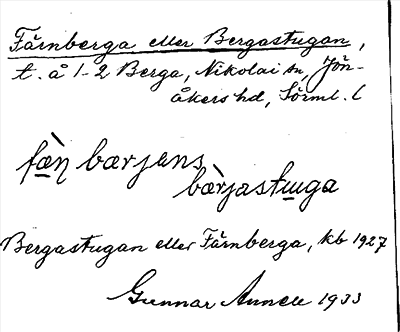 Färnberga eller Bergastugan,
t. å 1-2 Berga, Nikolai sn, Jön-
åkers hd, Sörml. l
fæ̀ṇ bærjens
bærjastuga
Bergastugan eller Färnberga, kb 1927
Gunnar Annell 1933